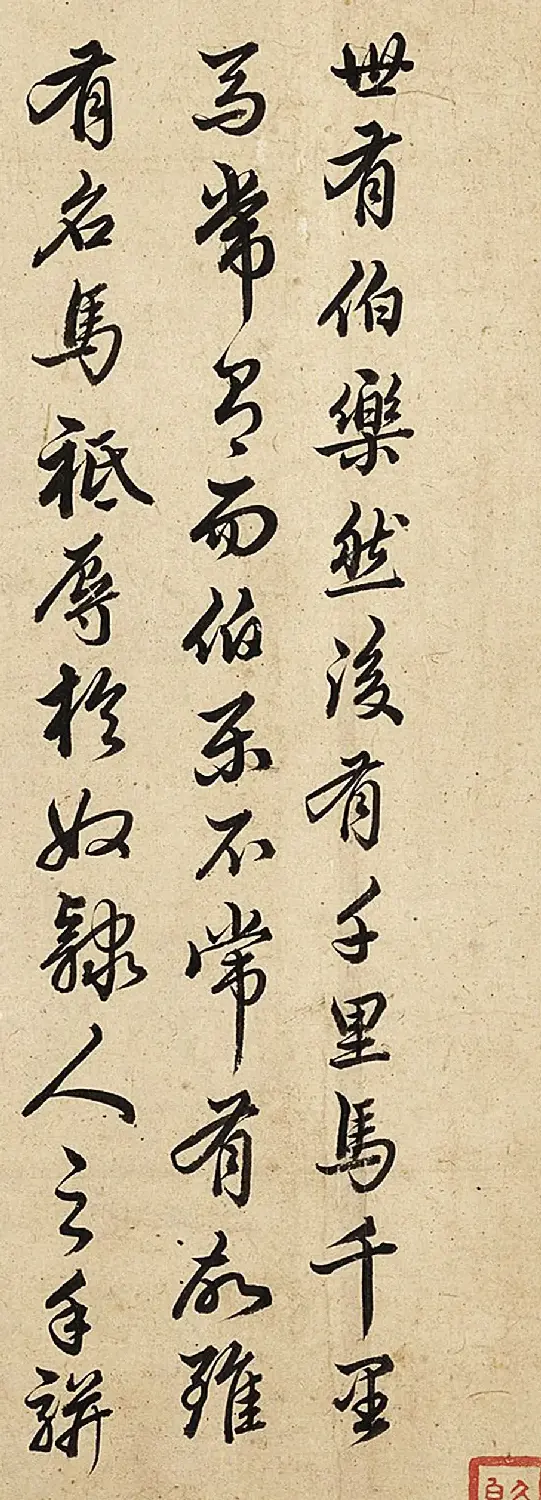 世有伯樂然後有千里馬千里
馬常有而伯樂不常有故雖
有名馬祗辱於奴隸人之手駢